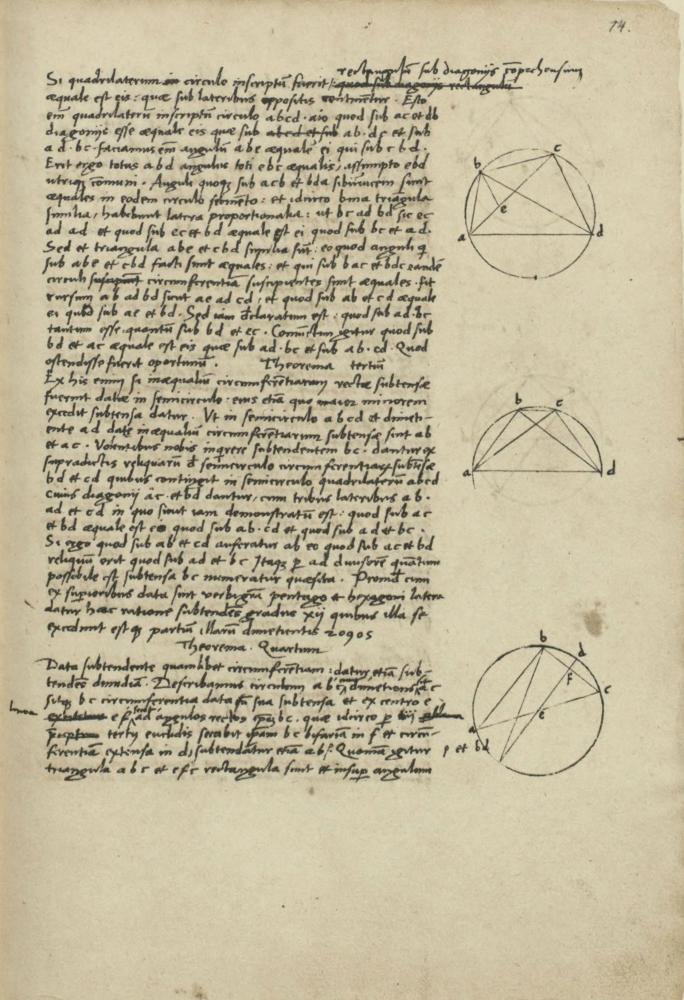 14.
rectangulũ sub diagonijs cõprehensum
Si quadrilaterum in circulo inscriptũ fuerit quod sub diagonijs rectangulũ
æquale est eis: quæ sub lateribus oppositis continentur. Esto
em̃ quadrilaterũ inscriptũ circulo abcd. aio quod sub ac et db
diagonijs esse æquale eis quæ sub ab. dc et sub
ad. bc. faciamus em̃ angulũ abe æqualẽ ei qui sub cbd.
Erit ergo totus abd angulus toti ebc æqualis, assumpto ebd
utriqꝫ cõmuni. Anguli quoqꝫ sub acb et bda sibiinvicem sunt
æquales in eodem circuli segmẽto: et idcirco bina triãgula
similia, habebunt latera proportionalia: ut bc ad bd sic ec
ad ad et quod sub ec et bd æquale est ei quod sub bc et ad.
Sed et triangula abe et cbd similia sũt: eo quod anguli q̃
sub abe et cbd facti sunt æquales: et qui sub bac et bdc eandẽ
circuli circumferentiã suscipientes sunt æquales. fit
rursum ab ad bd sicut ae ad cd: et quod sub ab et cd æquale
ei quod sub ae et bd. Sed iam declaratum est: quod sub ad. bc
tantum esse. quantũ sub bd et ec. Coniunctim igitur quod sub
bd et ac æquale est eis quæ sub ad. bc et sub ab. cd. Quod
ostendisse fuerit oportunũ. Theorema tertiũ
Ex his enim si inæqualiũ circumferẽtiarum rectæ subtensæ
fuerint datæ in semicirculo: eius etiã quo maior minorem
excedit subtensa datur. Ut in semicirculo abcd et dimeti-
ente ad datæ inæqualiũ circumferẽtiarum subtensæ sint ab
et ac. Volentibus nobis inqrere subtendentem bc. dantur ex
supradictis reliquarũ de semicirculo circumferentiarũ subtẽsæ
bd et cd quibus contingit in semicirculo quadrilaterũ abcd
cuius diagonij ac et bd dantur, cum tribus lateribus ab.
ad et cd in quo sicut iam demonstratũ est: quod sub ac
et bd æquale est eo quod sub ab. cd et quod sub ad et bc.
Si ergo quod sub ab et cd auferatur ab eo quod sub ac et bd
reliquũ erit quod sub ad et bc Itaqꝫ p ad divisorẽ quãtum
possibile est subtensa bc numeratur quæsita. Proinde cum
ex superioribus data sint verbi grã. pentago et hexagoni latera
datur hac ratione subtendẽs gradus xij quibus illa se
excedunt estqꝫ partiũ illarũ dimetientis 20905
Theorema. Quartum
Data subtendente quamlibet circumferẽtiam: datur etiã sub-
tendẽs dimidiã. Describamus circulum abc dimetiens ac
sitqꝫ bc circumferentia data cũ sua subtensa et ex centro e
linea
e f ad angulos rectos ipsi bc. quæ idcirco p iij
tertij euclidis secabit ipsam bc bifariã in f et circũ-
ferentiam extensa in d, subtendãtur etiã ab. Quoniã igitur et bd
triangula abc et efc rectangula sunt et insup angulum
a b c d e
a b c d
a b c d e f